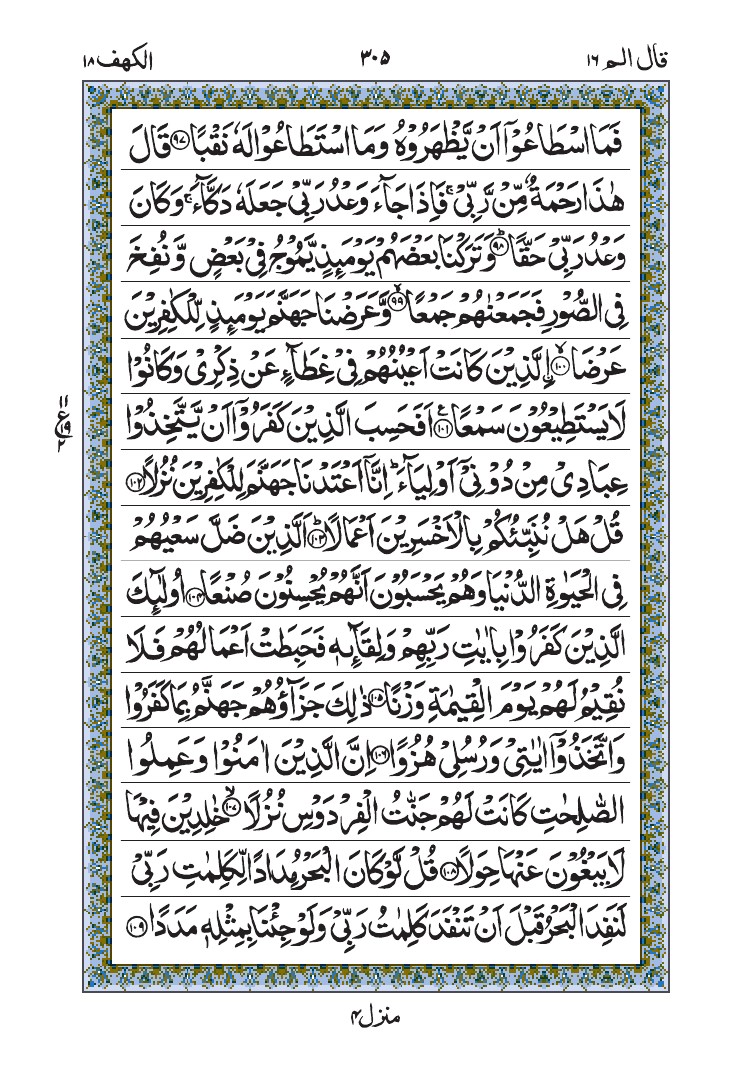 قال الم ١٦
٣٠٥
الكهف ١٨
فَمَا اسْطَاعُوْۤا اَنْ يَّظْهَرُوْهُ وَمَا اسْتَطَاعُوْا لَهٗ نَقْبًا ﴿٩٧﴾ قَالَ
هٰذَا رَحْمَةٌ مِّنْ رَّبِّىْ ۚ فَاِذَا جَآءَ وَعْدُ رَبِّىْ جَعَلَهٗ دَكَّآءَ ۚ وَكَانَ
وَعْدُ رَبِّىْ حَقًّا ؕ ﴿٩٨﴾ وَتَرَكْنَا بَعْضَهُمْ يَوْمَئِذٍ يَّمُوْجُ فِىْ بَعْضٍ وَّنُفِخَ
فِى الصُّوْرِ فَجَمَعْنٰهُمْ جَمْعًا ۙ ﴿٩٩﴾ وَّعَرَضْنَا جَهَنَّمَ يَوْمَئِذٍ لِّلْكٰفِرِيْنَ
عَرْضَا ۙ ﴿١٠٠﴾ اۨلَّذِيْنَ كَانَتْ اَعْيُنُهُمْ فِىْ غِطَآءٍ عَنْ ذِكْرِىْ وَكَانُوْا
لَا يَسْتَطِيْعُوْنَ سَمْعًا ﴿١٠١﴾ اَفَحَسِبَ الَّذِيْنَ كَفَرُوْۤا اَنْ يَّتَّخِذُوْا
عِبَادِىْ مِنْ دُوْنِىْۤ اَوْلِيَآءَ ؕ اِنَّاۤ اَعْتَدْنَا جَهَنَّمَ لِلْكٰفِرِيْنَ نُزُلًا ﴿١٠٢﴾
قُلْ هَلْ نُنَبِّئُكُمْ بِالْاَخْسَرِيْنَ اَعْمَالًا ؕ ﴿١٠٣﴾ اَلَّذِيْنَ ضَلَّ سَعْيُهُمْ
فِى الْحَيٰوةِ الدُّنْيَا وَهُمْ يَحْسَبُوْنَ اَنَّهُمْ يُحْسِنُوْنَ صُنْعًا ﴿١٠٤﴾ اُولٰٓئِكَ
الَّذِيْنَ كَفَرُوْا بِاٰيٰتِ رَبِّهِمْ وَلِقَآئِهٖ فَحَبِطَتْ اَعْمَالُهُمْ فَلَا
نُقِيْمُ لَهُمْ يَوْمَ الْقِيٰمَةِ وَزْنًا ﴿١٠٥﴾ ذٰلِكَ جَزَآؤُهُمْ جَهَنَّمُ بِمَا كَفَرُوْا
وَاتَّخَذُوْۤا اٰيٰتِىْ وَرُسُلِىْ هُزُوًا ﴿١٠٦﴾ اِنَّ الَّذِيْنَ اٰمَنُوْا وَعَمِلُوا
الصّٰلِحٰتِ كَانَتْ لَهُمْ جَنّٰتُ الْفِرْدَوْسِ نُزُلًا ۙ ﴿١٠٧﴾ خٰلِدِيْنَ فِيْهَا
لَا يَبْغُوْنَ عَنْهَا حِوَلًا ﴿١٠٨﴾ قُلْ لَّوْ كَانَ الْبَحْرُ مِدَادًا لِّكَلِمٰتِ رَبِّىْ
لَنَفِدَ الْبَحْرُ قَبْلَ اَنْ تَنْفَدَ كَلِمٰتُ رَبِّىْ وَلَوْ جِئْنَا بِمِثْلِهٖ مَدَدًا ﴿١٠٩﴾
١١
ع
١٩
٢
منزل ٤